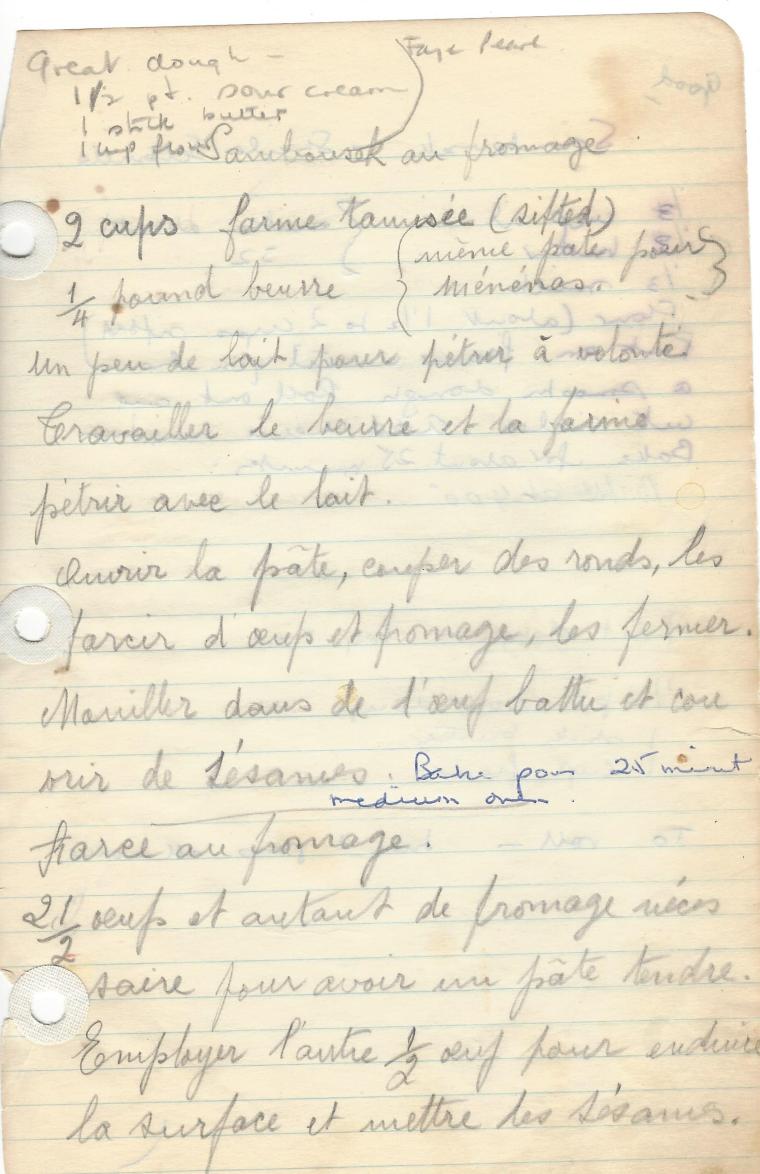 Great dough —
1 1/2 pt. sour cream
1 stick butter
1 cup flour
Faye Pearl
Sambousek au fromage
2 cups farine tamisée (sifted)
1/4 pound beurre {même pâte pour ménénas.}
un peu de lait pour pétrir à volonté.
Travailler le beurre et la farine
pétrir avec le lait.
Ouvrir la pâte, couper des ronds, les
farcir d'œuf et fromage, les fermer.
Mouiller dans de l'œuf battu et cou
vrir de sésames. Bake pour 25 minut
medium oven.
Farce au fromage.
2 1/2 œufs et autant de fromage néces
saire pour avoir un pâte tendre.
Employer l'autre 1/2 œuf pour enduire
la surface et mettre les sésames.
good